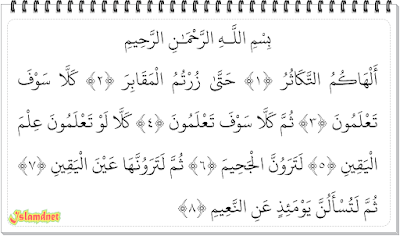 بِسْمِ اللَّـهِ الرَّحْمَـٰنِ الرَّحِيمِ
أَلْهَاكُمُ التَّكَاثُرُ ﴿١﴾ حَتَّىٰ زُرْتُمُ الْمَقَابِرَ ﴿٢﴾ كَلَّا سَوْفَ
تَعْلَمُونَ ﴿٣﴾ ثُمَّ كَلَّا سَوْفَ تَعْلَمُونَ ﴿٤﴾ كَلَّا لَوْ تَعْلَمُونَ عِلْمَ
الْيَقِينِ ﴿٥﴾ لَتَرَوُنَّ الْجَحِيمَ ﴿٦﴾ ثُمَّ لَتَرَوُنَّهَا عَيْنَ الْيَقِينِ ﴿٧﴾
ثُمَّ لَتُسْأَلُنَّ يَوْمَئِذٍ عَنِ النَّعِيمِ ﴿٨﴾
Islamdnet